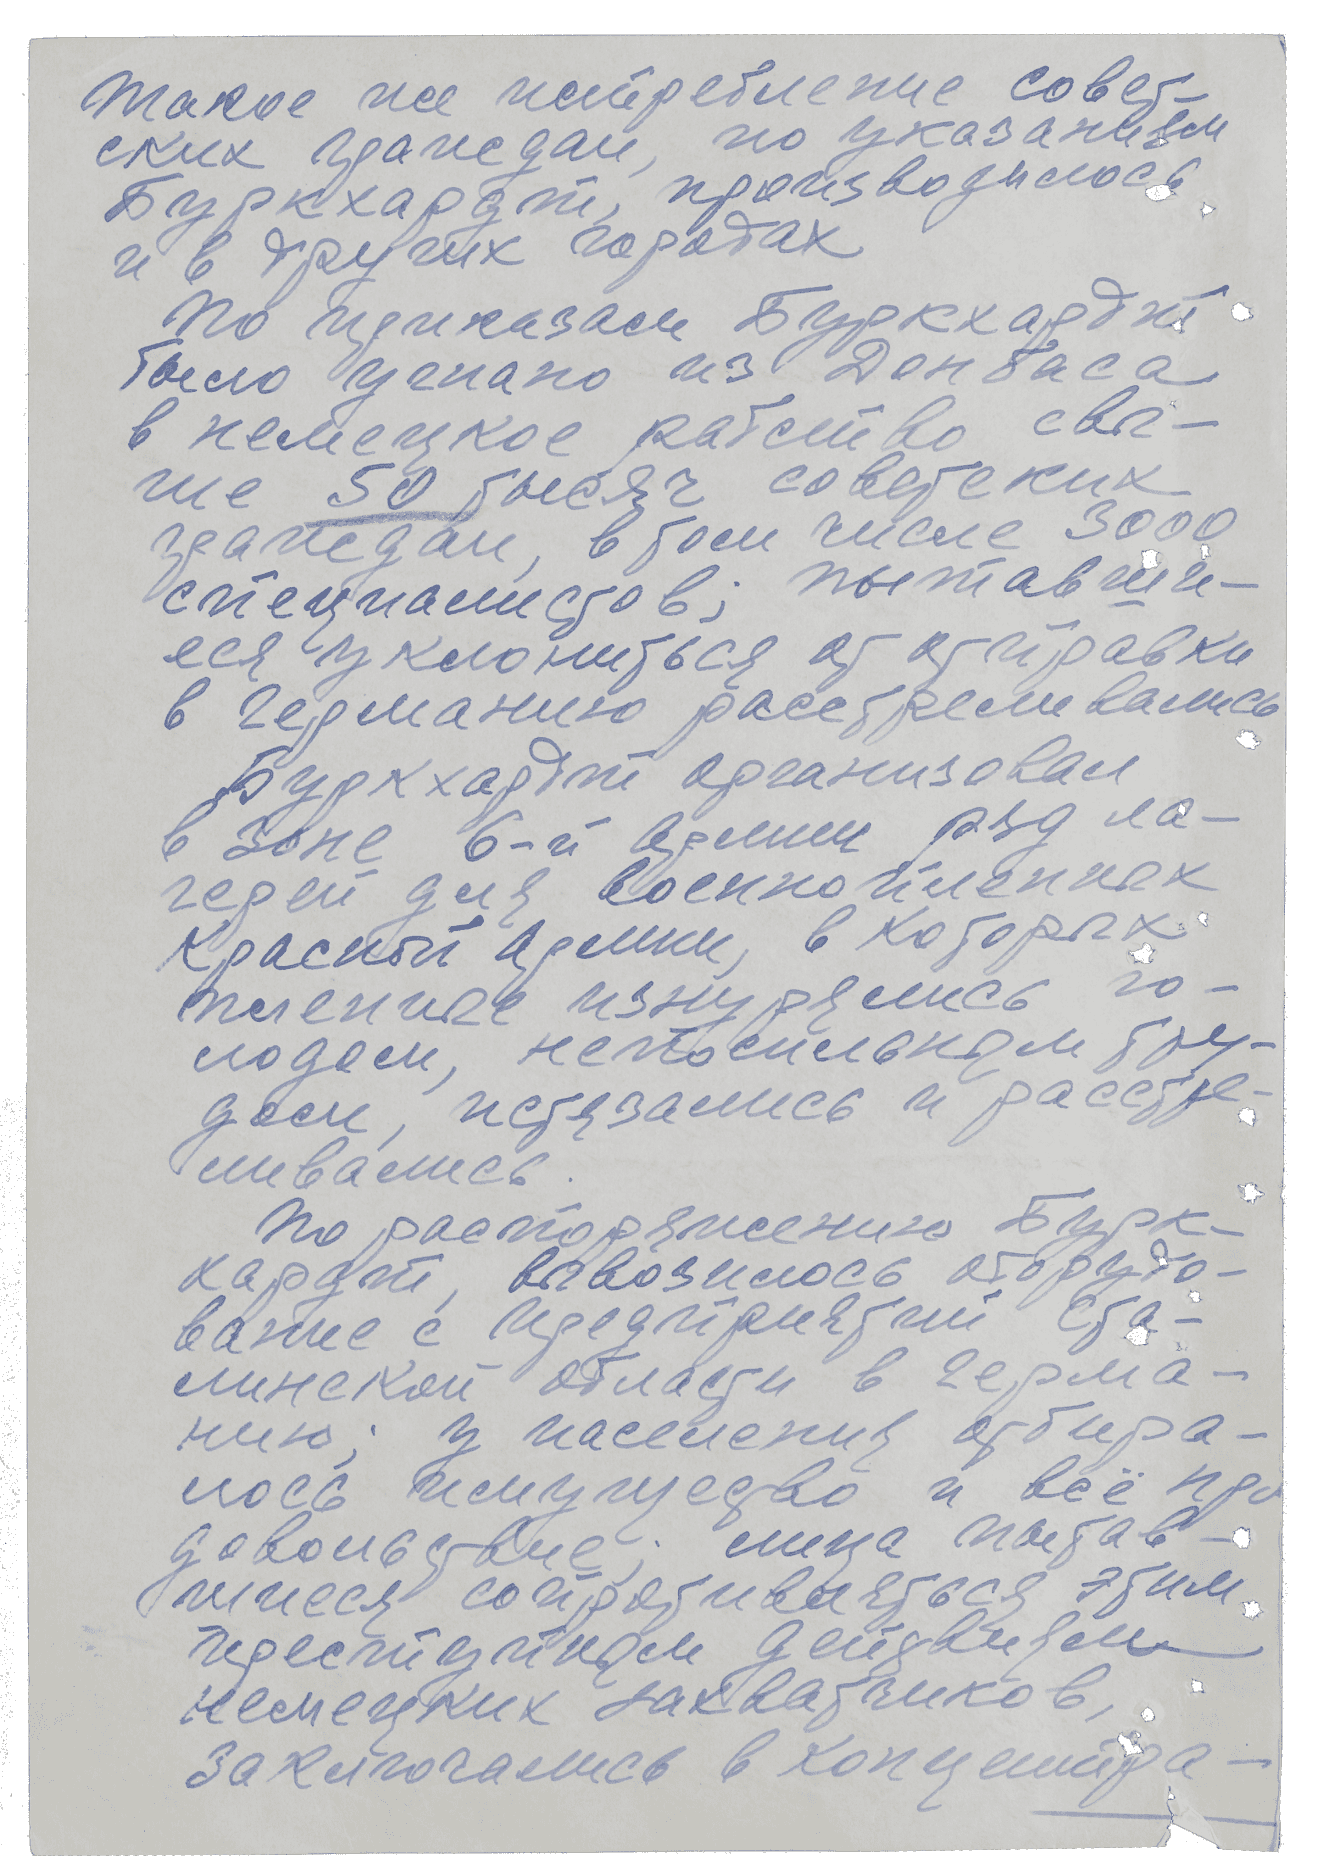 Такое же истребление совет-
ских граждан, по указаниям
Буркхардт, производилось
и в других городах
По приказам Буркхардт
было угнано из Донбаса
в немецкое рабство свы-
ше 50 тысяч советских
граждан, в том числе 3000
специалистов; пытавши-
еся уклониться от отправки
в Германию расстреливались
Буркхардт организовал
в зоне 6-й армии ряд ла-
герей для военнопленных
Красной Армии, в которых
пленные изнурялись го-
лодом, непосильным тру-
дом, истязались и расстре-
ливались.
По распоряжению Бурк-
хардт, вывозилось оборудо-
вание с предприятий Ста-
линской области в Герма-
нию; у населения отбира-
лось имущество и всё про
довольствие; лица пытав-
шиеся сопротивляться этим
преступным действиям
немецких захватчиков,
заключались в концентра-